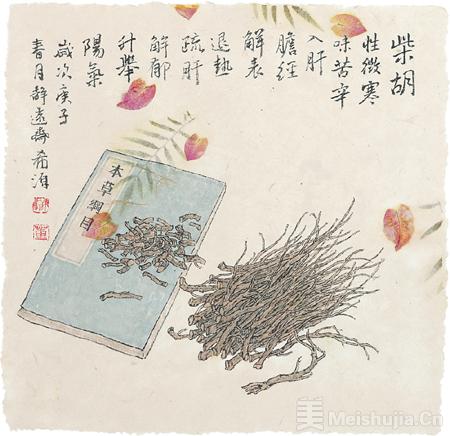 柴胡
性微寒
味苦辛
入肝
膽經
解表
退热
疏肝
解郁
升舉
陽氣
歲次庚子
春月静遠齋希海
本草綱目
美 Meishujia.Cn